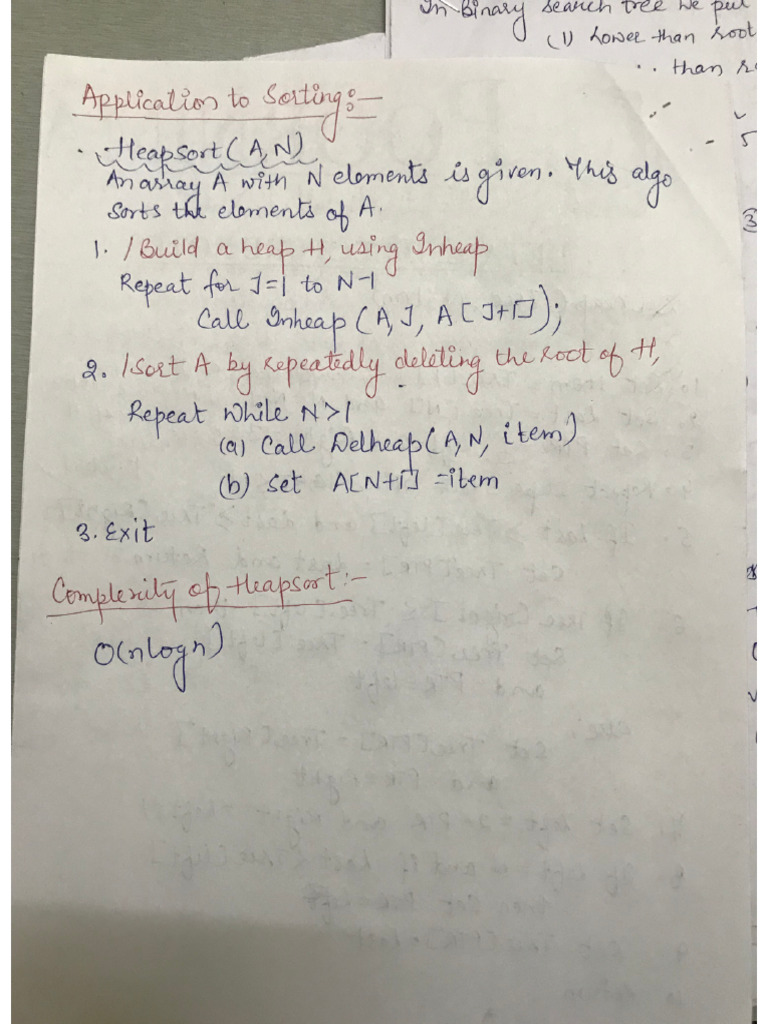 In Binary search tree we put
(1) Lower than root
than
Application to Sorting:-
Heapsort(A,N)
An array A with N elements is given. This algo
sorts the elements of A.
1. /Build a heap H, using Inheap
Repeat for J=1 to N-1
Call Inheap (A,J, A[J+1]);
2. /sort A by repeatedly deleting the root of H,
Repeat while N>1
(a) Call Delheap(A,N, item)
(b) set A[N+1] =item
3. Exit
Complexity of Heapsort:-
O(nlogn)